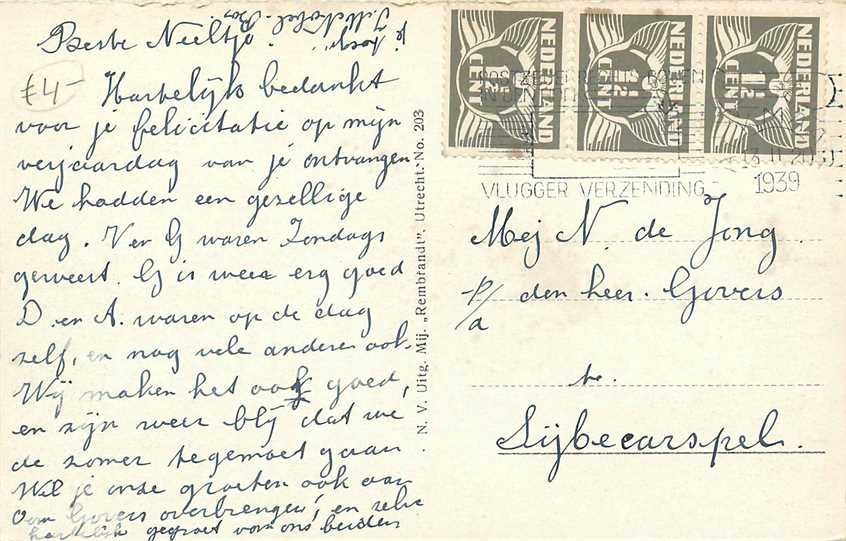 Beste Neeltje.
£4-
Hartelijk bedankt
voor je felicitatie op mijn
verjaardag van je ontvangen
We hadden een gezellige
dag. V en G waren Zondags
geweest. G is weer erg goed
D. en A. waren op de dag
zelf, en nog vele anderen ook.
Wij maken het ook goed,
en zijn weer blij dat we
de zomer tegemoet gaan
Wil je onze groeten ook aan
Oom Govers overbrengen, en zelve
hartelijk gegroet van ons beiden
je
N. V. Uitg. Mij. „Rembrandt”, Utrecht. No. 203
NEDERLAND
1½
CENT
NEDERLAND
1½
CENT
NEDERLAND
1½
CENT
POSTZEGEL RECHTS BOVEN
VLUGGER VERZENDING
1939
Mej N. de Jong
p/a den heer. Govers
te.
Sijbecarspel.